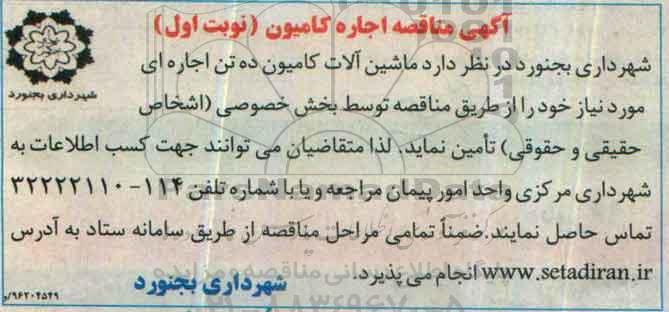 آگهی مناقصه اجاره کامیون (نوبت اول)
شهرداری بجنورد
شهرداری بجنورد در نظر دارد ماشین آلات کامیون ده تن اجاره ای
مورد نیاز خود را از طریق مناقصه توسط بخش خصوصی (اشخاص
حقیقی و حقوقی) تأمین نماید. لذا متقاضیان می توانند جهت کسب اطلاعات به
شهرداری مرکزی واحد امور پیمان مراجعه و یا با شماره تلفن ۱۱۴ - ۳۲۲۲۲۱۱۰
تماس حاصل نمایند.ضمناً تمامی مراحل مناقصه از طریق سامانه ستاد به آدرس
www.setadiran.ir انجام می پذیرد.
شهرداری بجنورد
/۹۶۲۰۴۵۴۹